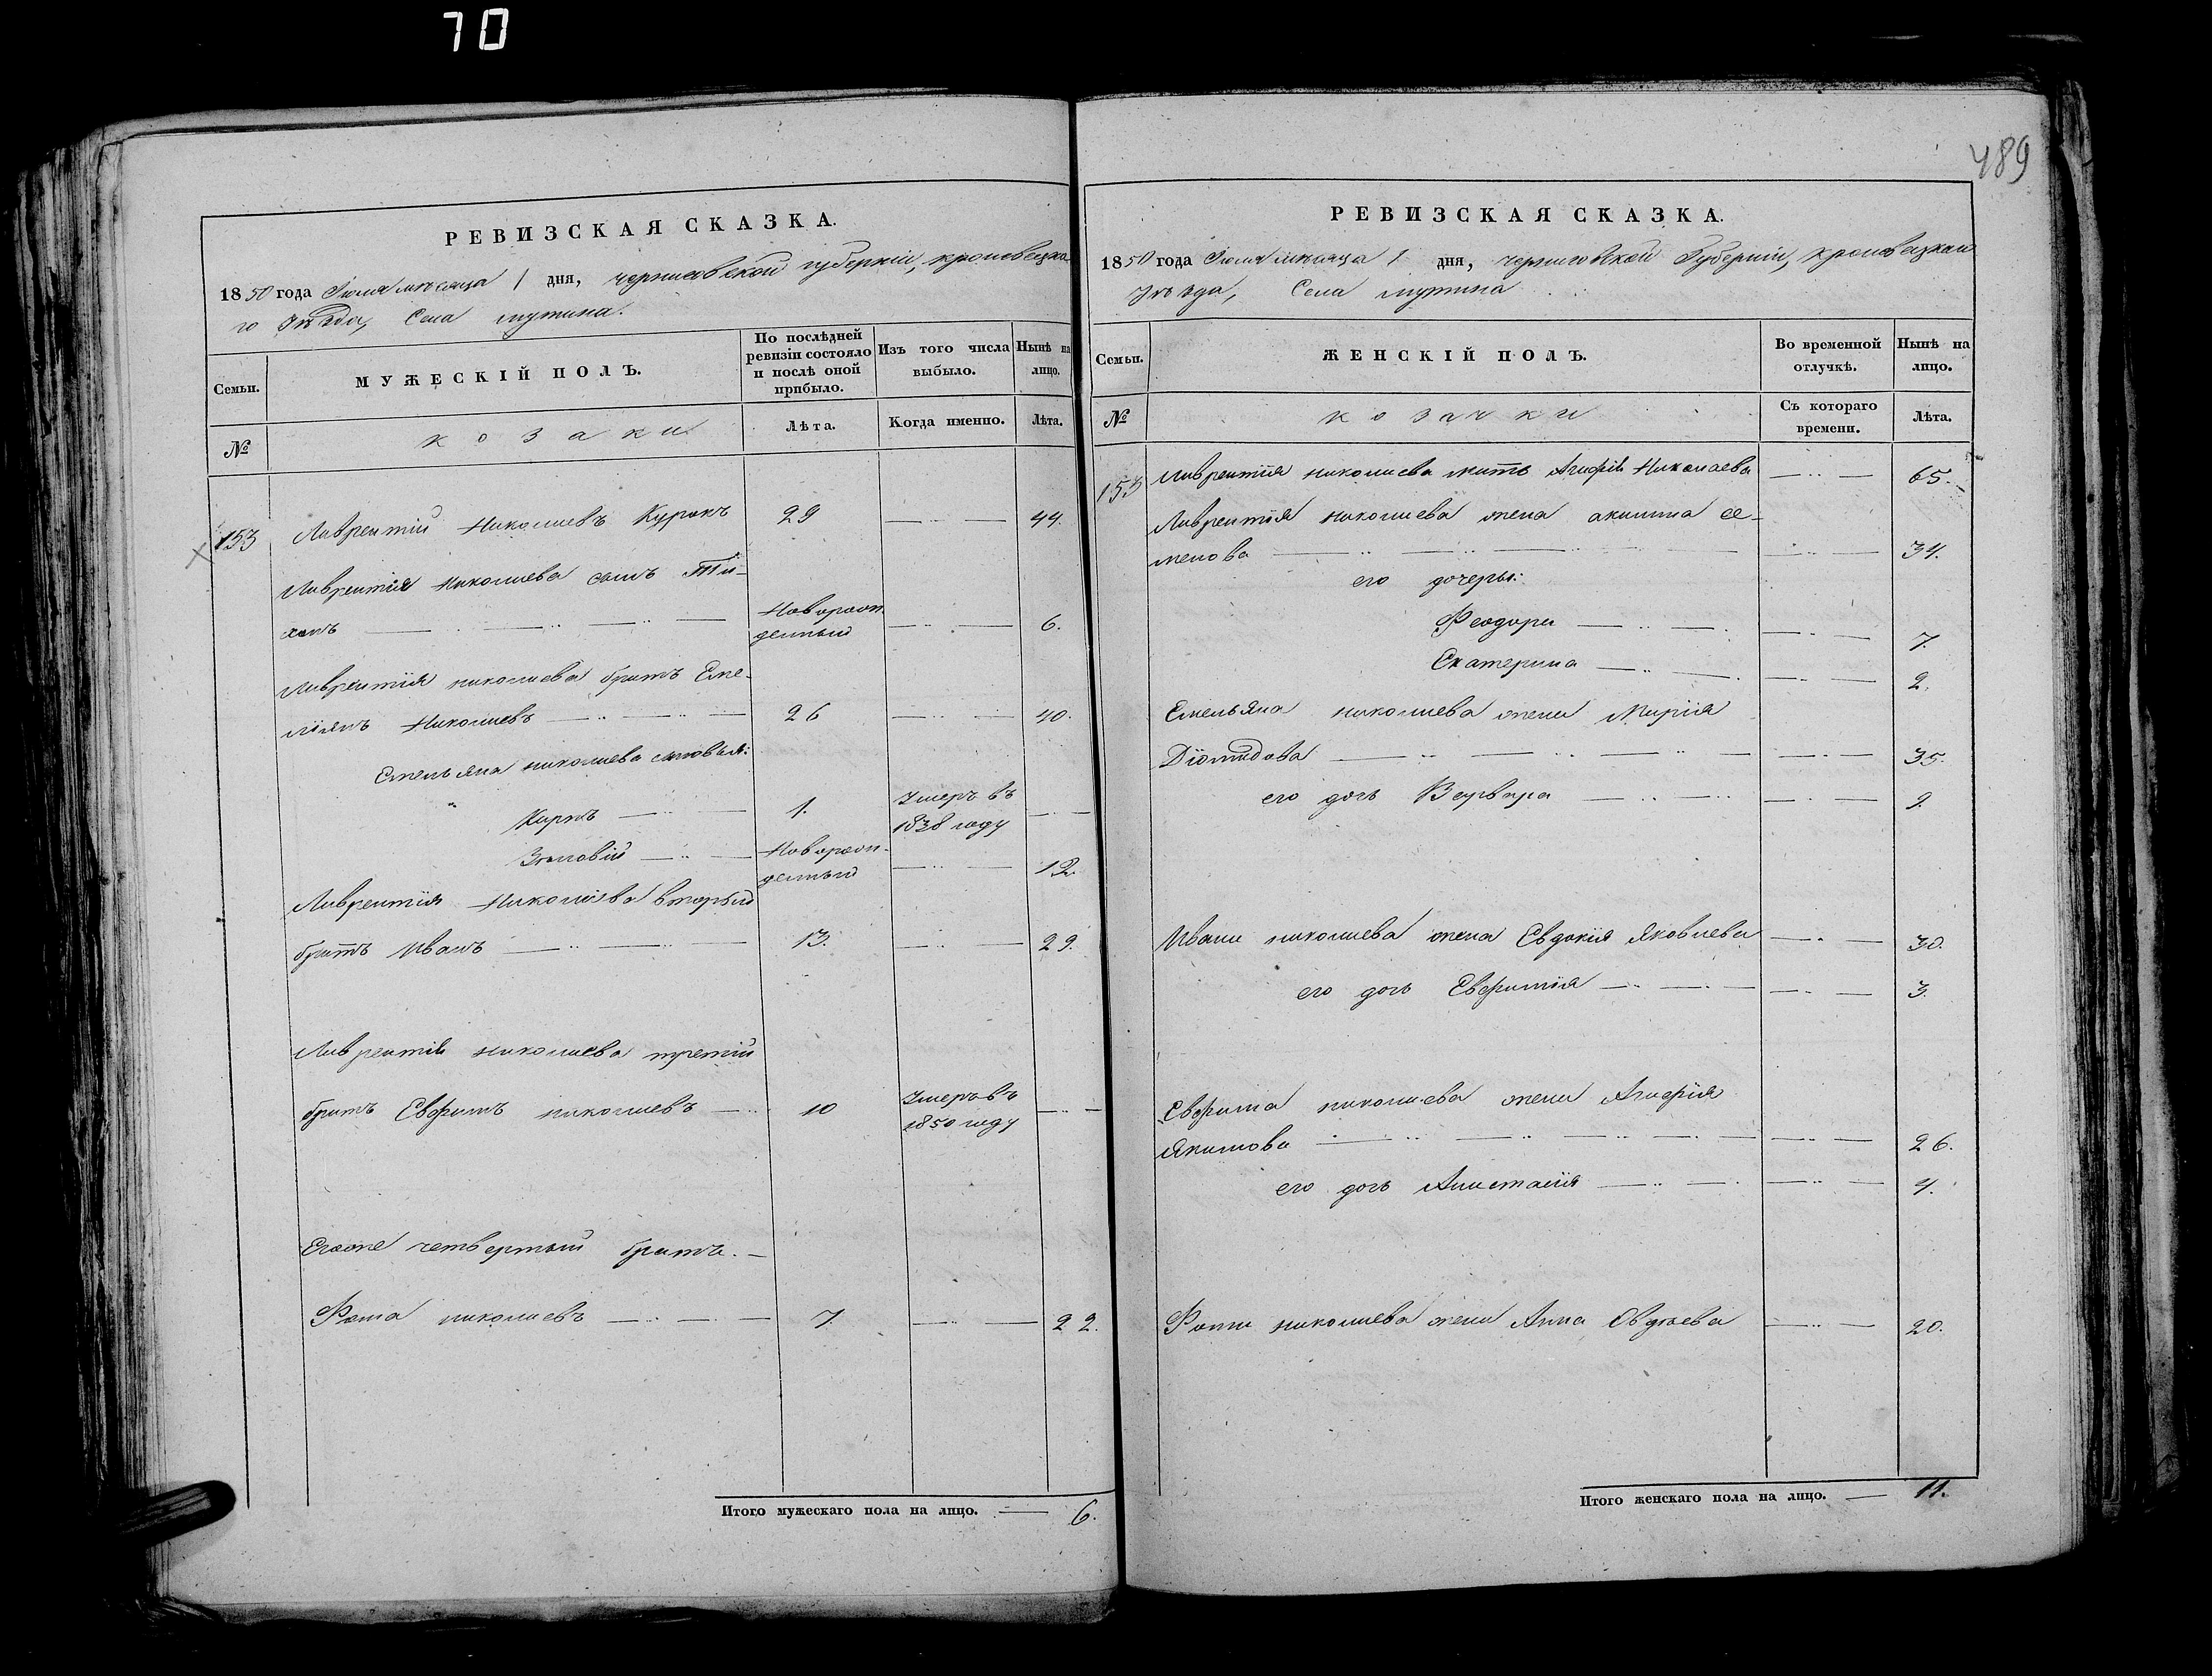 70
РЕВИЗСКАЯ СКАЗКА.
1850 года Іюля мѣсяца 1 дня, черниговской губерніи, кролевецка-
го Уѣзда, Села мутина.
Семьи.
МУЖЕСКІЙ ПОЛЪ.
По послѣдней ревизіи состояло и послѣ оной прибыло.
Изъ того числа выбыло.
Нынѣ на лицо.
№
козаки
Лѣта.
Когда именно.
Лѣта.
153 Лаврентій Николаевъ 29 — 44.
Лаврентія Николаева сынъ Ти-
хонъ — Новорож-
денный — 6.
Лаврентія николаева братъ Еме-
ліянъ Николаевъ — 26 — 40.
Емельяна николаева сыновья:
Карпъ — 1. Умеръ въ
1838 году —
Зѣновій — Новорож-
денный — 12
Лаврентія Николаева вторый
братъ Иванъ — 13. — 29.
Лаврентія николаева третій
братъ Евфимъ николаевъ — 10 Умеръ въ
1850 году —
Егоже четвертый братъ. —
Фома николаевъ — 7. — 22.
Итого мужескаго пола на лицо. — 6.
489
РЕВИЗСКАЯ СКАЗКА.
1850 года Іюля мѣсяца 1 дня, черниговской Губерніи, кролевецкаго
Уѣзда, Села мутина
Семьи.
ЖЕНСКІЙ ПОЛЪ.
Во временной отлучкѣ.
Нынѣ на лицо.
№
козачки
Съ котораго времени.
Лѣта.
153 Лаврентія николаева мать Агафія Николаева — 65.
Лаврентія николаева жена акилина се-
менова — 34.
его дочеры:
Феодора — 7.
Екатерина — 2.
Емельяна николаева жена Марія
Діомидова — 35.
его дочь Варвара — 9.
Ивана николаева жена Евдокія Яковлева — 30.
его дочь Евфимія — 3.
Евфима николаева жена Агафія
Якимова — 26.
его дочь Анастасія — 4.
Фомы николаева жена Анна — 20.
Итого женскаго пола на лицо. — 11.